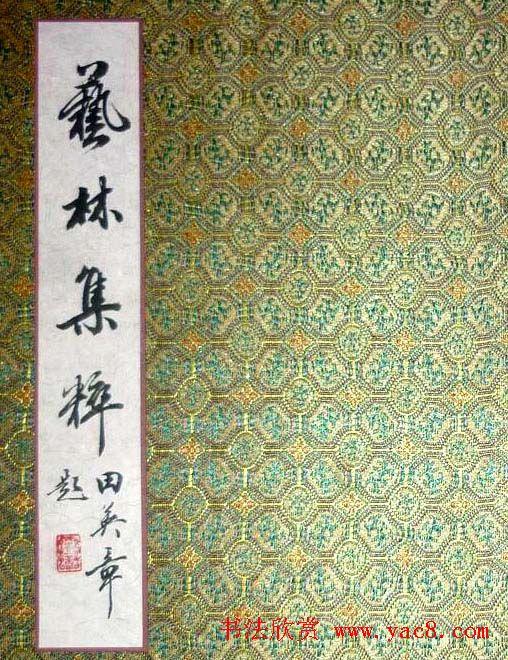 藝林集粹
田英章
题
书法欣赏 www.yac8.com